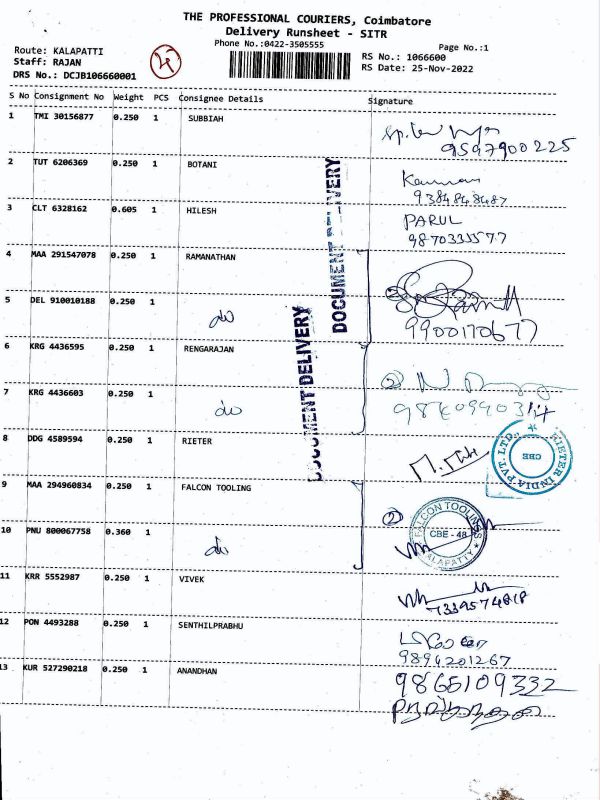 THE PROFESSIONAL COURIERS, Coimbatore
Delivery Runsheet - SITR
Phone No.:0422-3505555
Page No.:1
Route: KALAPATTI
Staff: RAJAN
DRS No.: DCJB106660001
RS No.: 1066600
RS Date: 25-Nov-2022
S No Consignment No Weight PCS Consignee Details Signature
1 TMI 30156877 0.250 1 SUBBIAH
9597900225
2 TUT 6206369 0.250 1 BOTANI
Kannan
9384848487
3 CLT 6328162 0.605 1 HILESH
PARUL
9870333577
4 MAA 291547078 0.250 1 RAMANATHAN
5 DEL 910010188 0.250 1 do
9900170677
6 KRG 4436595 0.250 1 RENGARAJAN
7 KRG 4436603 0.250 1 do
8 DDG 4589594 0.250 1 RIETER
RIETER INDIA PVT. LTD.
CBE
9 MAA 294960834 0.250 1 FALCON TOOLING
10 PNU 800067758 0.360 1 do
FALCON TOOLINGS
CBE - 48
KALAPATTY
11 KRR 5552987 0.250 1 VIVEK
7339574818
12 PON 4493288 0.250 1 SENTHILPRABHU
9894201267
13 KUR 527290218 0.250 1 ANANDHAN
9865109332
DOCUMENT DELIVERY
DOCUMENT DELIVERY